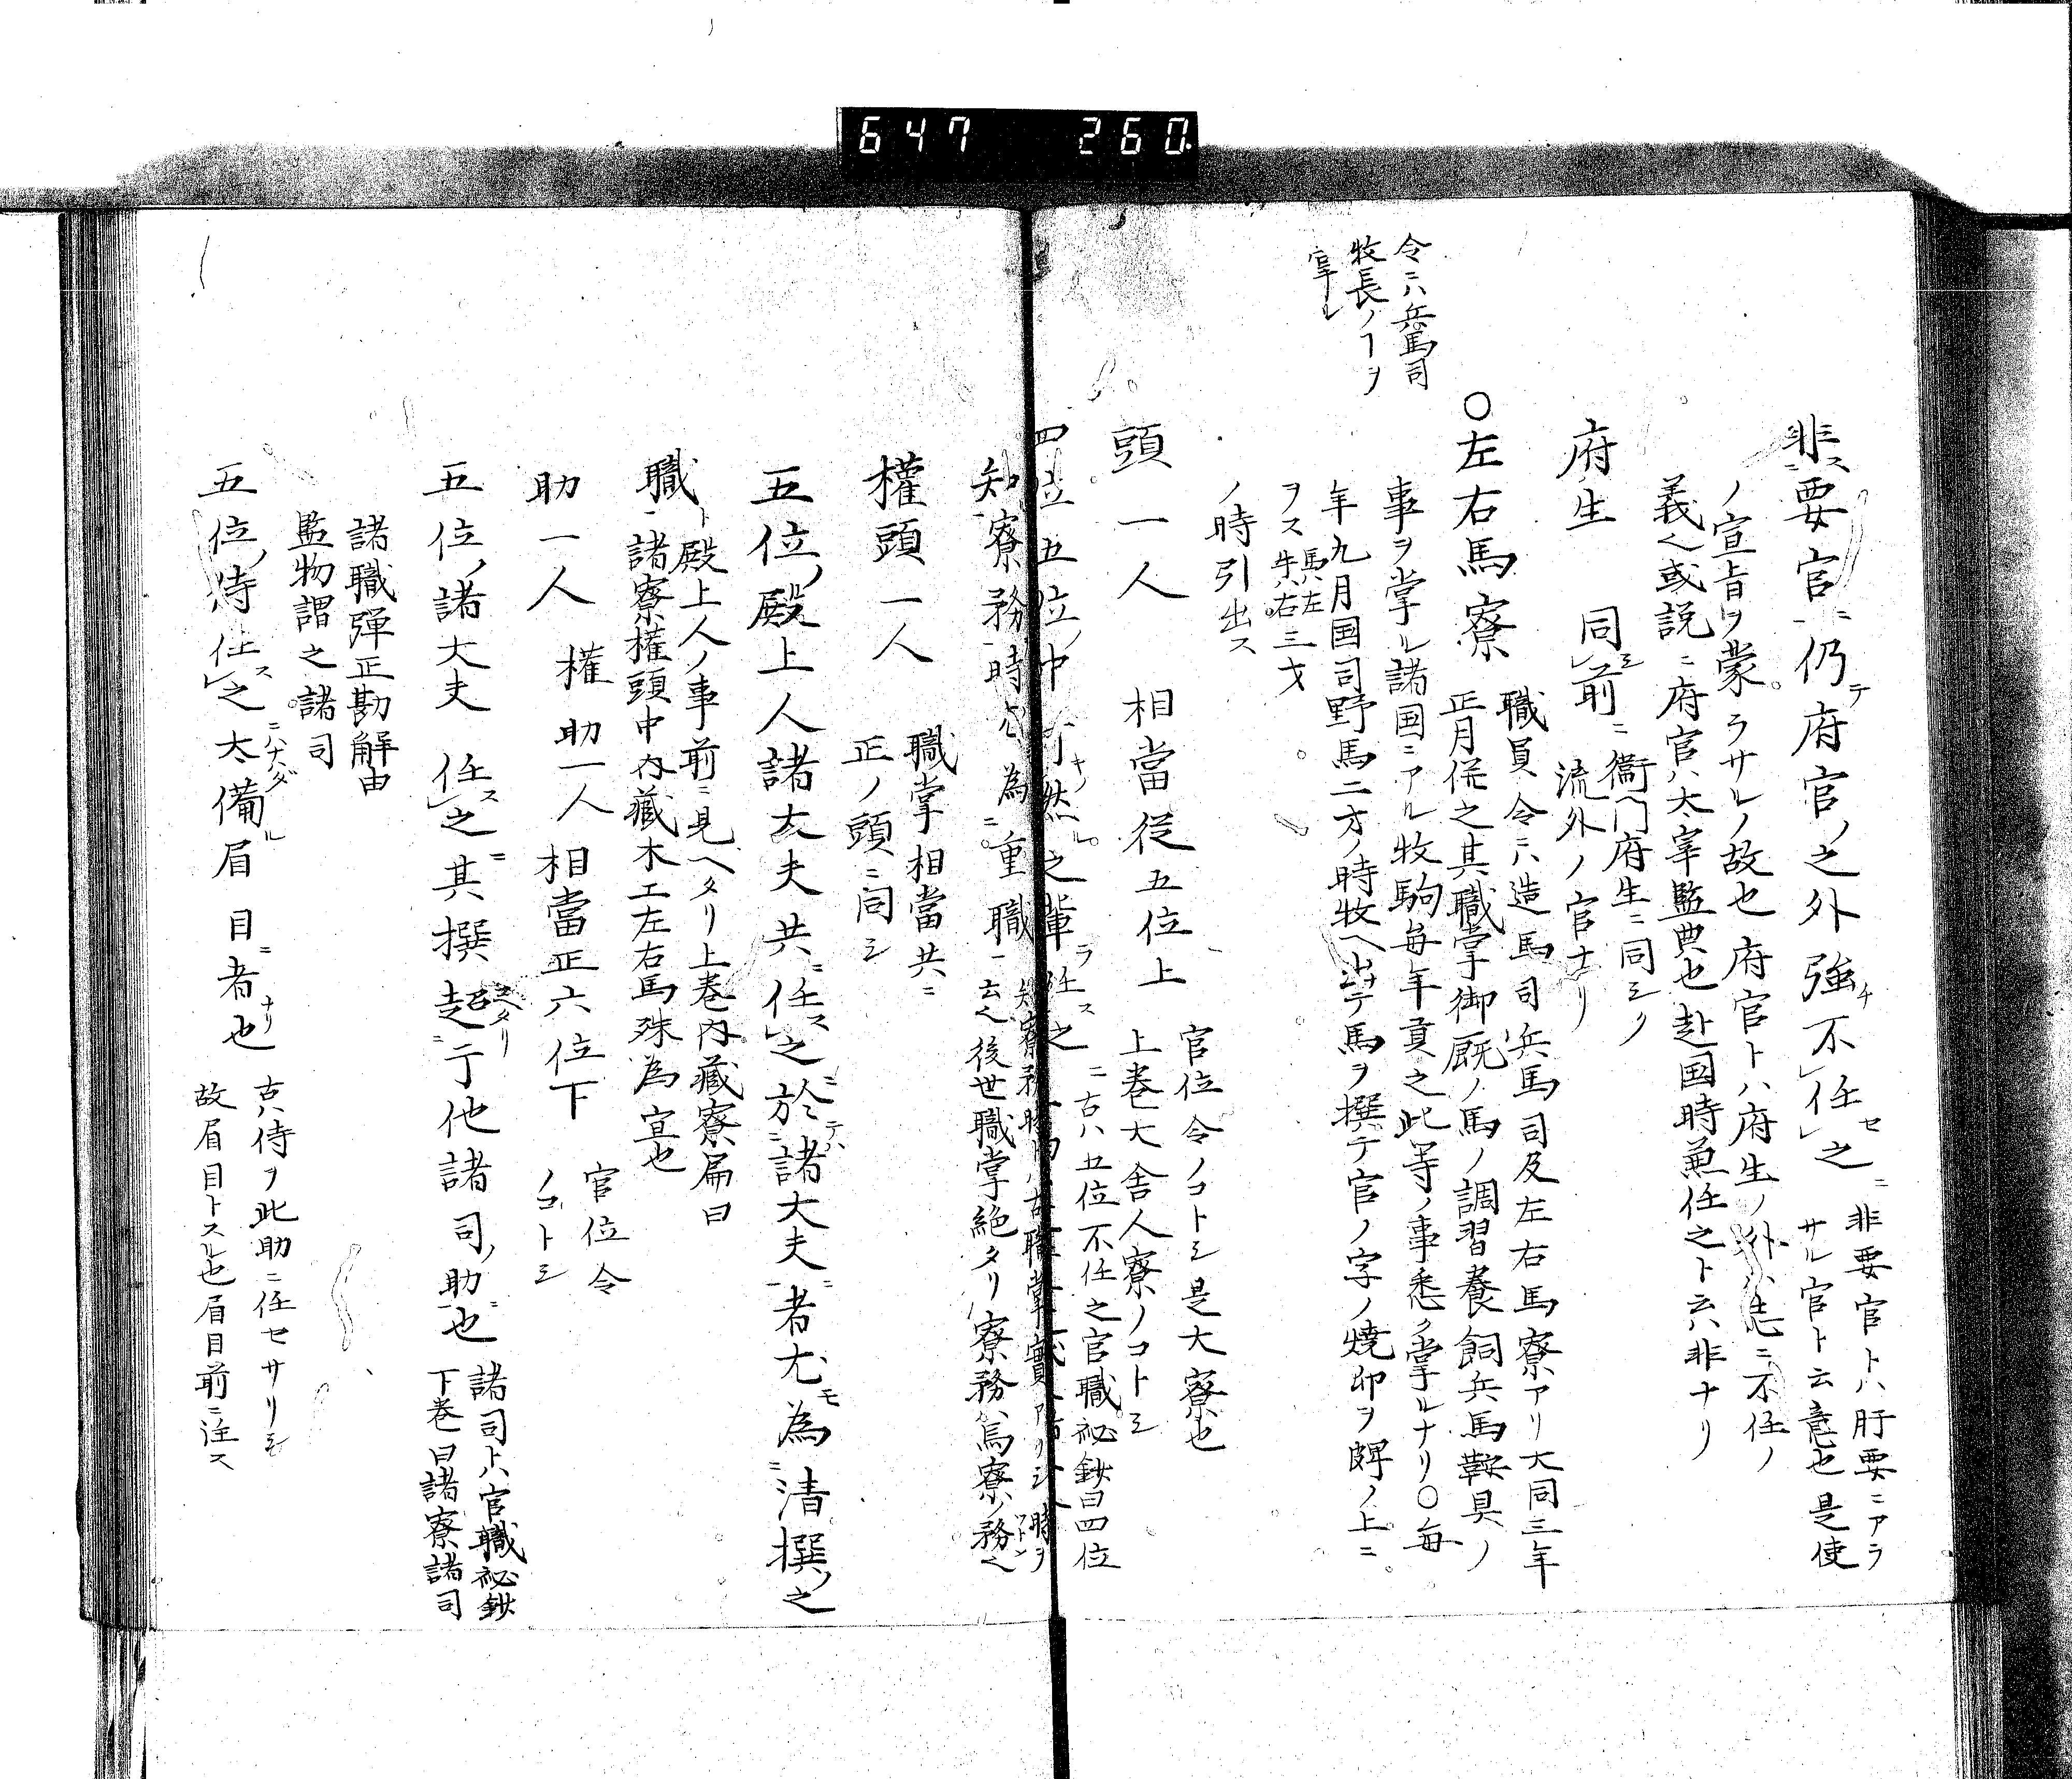 647 260
非要官仍府官ノ之外強不任之
非要官トハ肝要ニアラ
サル官ト云意也是使
ノ宣旨ヲ蒙ラサルノ故也府官トハ府生ノ外ハ志ニ不任ノ
義也或説ニ府官ハ太宰監典也赴国時兼任之ト云ハ非ナリ
府生 同前
前ニ衛門府生ニ同シ
流外ノ官ナリ
令ニハ兵馬司
牧長ノヿヲ
掌ル
○左右馬寮
職員令ニハ造馬司兵馬司及左右馬寮アリ大同三年
正月併之其職掌御厩ノ馬ノ調習養飼兵馬鞍具ノ
事ヲ掌ル諸国ニアル牧駒毎年貢之此等ノ事悉ク掌ルナリ○毎
年九月国司野馬二才ノ時牧ヘ出テ馬ヲ撰テ官ノ字ノ焼印ヲ髀ノ上ニ
ヲス馬ハ左牛ハ右三才
ノ時引出ス
頭一人 相當従五位上
官位令ノコトシ是大寮也
上巻大舎人寮ノコトシ
四位五位ノ中可然之輩任之
古ハ五位不任之官職祕鈔曰四位
知寮務時尤為重職
知寮務時尚ハ古職掌ノ實アリシ時ヲ
云也後世職掌絶タリ寮務ハ馬寮ノ務也
權頭一人
職掌相當共ニ
正ノ頭ニ同シ
五位ノ殿上人諸大夫共任之於諸大夫者尤為清撰之
職
殿上人ノ事前ニ見ヘタリ上巻内藏寮扁曰
諸寮權頭中内藏木工左右馬殊為宜也
助一人 權助一人 相當正六位下
官位令
ノコトシ
五位ノ諸大夫任之其撰超于他諸司ノ助也
諸司トハ官職祕鈔
下巻曰諸寮諸司
諸職彈正勘解由
監物謂之諸司
五位ノ侍任之太備眉目者也
古ハ侍ヲ此助ニ任セサリシ
故眉目トスル也眉目前ニ注ス